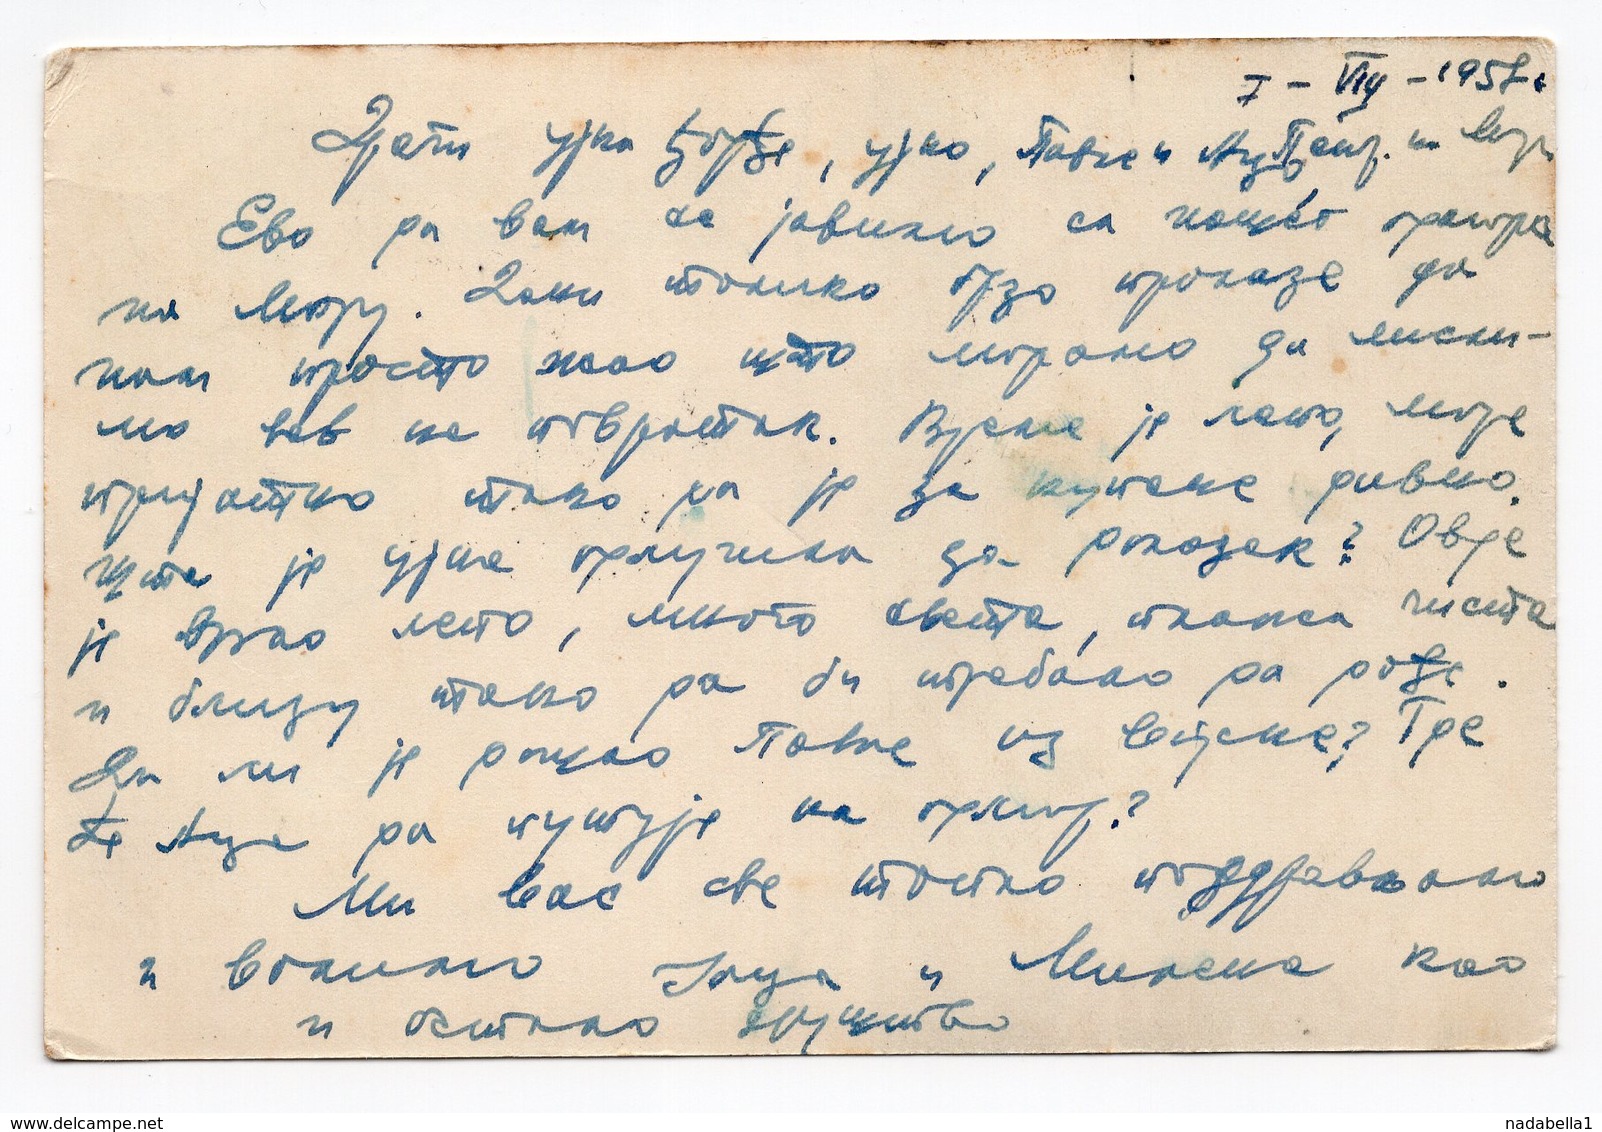 I - VIII - 1957.
Драги ујка Ђорђе, ујно, Павле и
Ево да вам се јавимо са нашег одмора
на мору. Дани толико брзо пролазе да
нам просто жао што морамо да мисли-
мо већ на повратак. Време је лепо, море
пријатно тако да је за купање дивно.
Шта је ујна одлучила за долазак? Овде
је врло лепо, много света, плажа чиста
и близу тако да би требало да дође.
Да ли је дошао Павле из војске? Где
ће Аца да путује на одмор?
Ми вас све много поздрављамо
и волимо и Милена као
и остало друштво
nadabella1